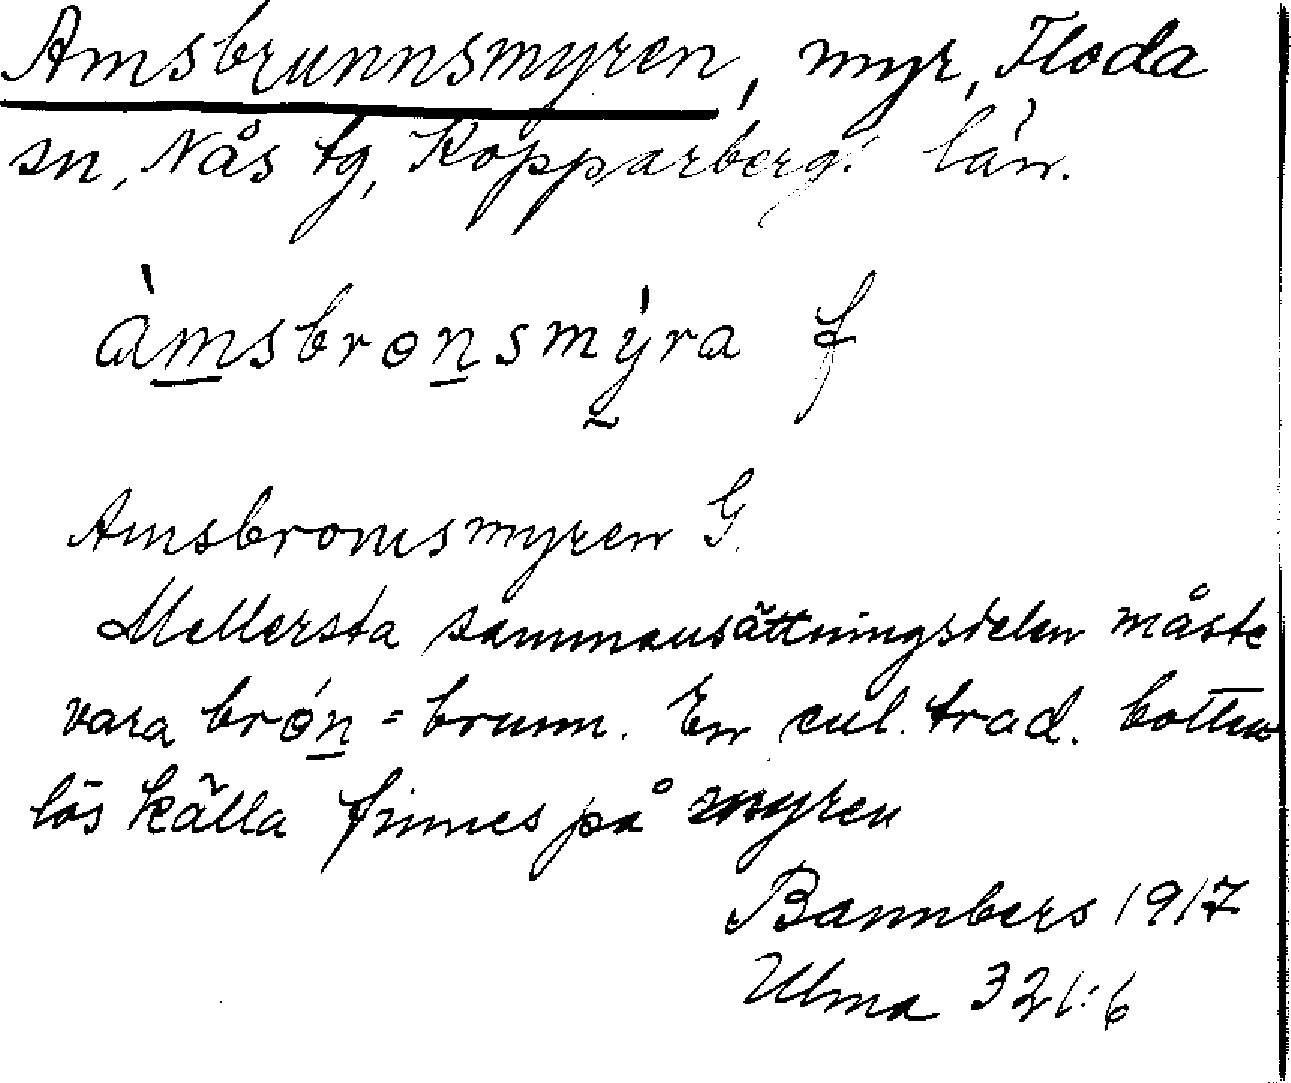 Amsbrunnsmyren, myr, Floda
sn, Nås tg, Kopparberg. län.
àmsbronsmy̍ra f
Amsbronnsmyren G.
Mellersta sammansättningsdelen måste
vara brón = brunn. En enl. trad. botten
lös källa finnes på myren
Bannbers 1917
Ulma 321:6